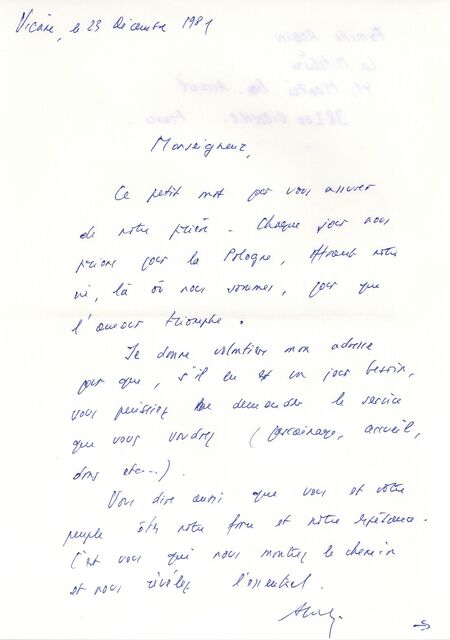 le 23 décembre 1981
Monseigneur,
Ce petit mot pour vous assurer
de notre prière. Chaque jour nous
prions pour la Pologne, offrant notre
vie, là où nous sommes, pour que
l'amour triomphe.
Je donne volontiers mon adresse
pour que, s'il en est un jour besoin,
vous puissiez me demander le service
que vous voudrez (parrainage, accueil,
dons etc...).
Vous dire aussi que vous et votre
peuple êtes notre force et notre espérance.
C'est vous qui nous montrez le chemin
et nous révélez l'essentiel.